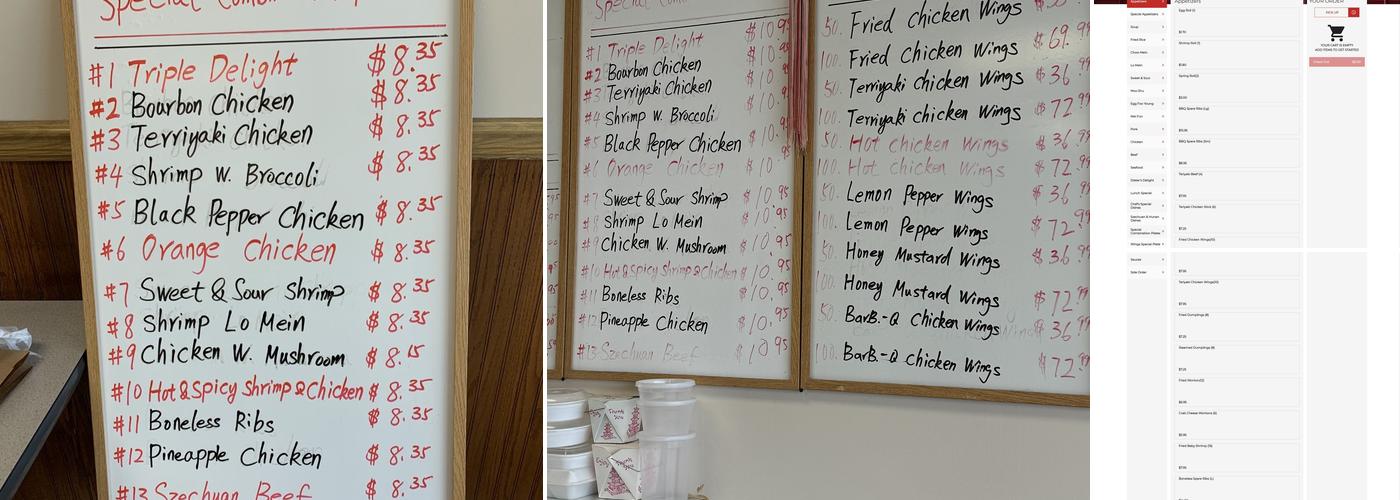 Special Com
#1 Triple Delight $8.35
#2 Bourbon Chicken $8.35
#3 Terriyaki Chicken $8.35
#4 Shrimp W. Broccoli $8.35
#5 Black Pepper Chicken $8.35
#6 Orange Chicken $8.35
#7 Sweet & Sour Shrimp $8.35
#8 Shrimp Lo Mein $8.35
#9 Chicken W. Mushroom $8.15
#10 Hot & Spicy Shrimp & Chicken $8.35
#11 Boneless Ribs $8.35
#12 Pineapple Chicken $8.35
#13 Szechuan Beef $8.35
#1 Triple Delight $10.9
#2 Bourbon Chicken $10.9
#3 Terriyaki Chicken $10.
#4 Shrimp W. Broccoli $10.
#5 Black Pepper Chicken $10.
#6 Orange Chicken $10.
#7 Sweet & Sour Shrimp $10.95
#8 Shrimp Lo Mein $10.95
#9 Chicken W. Mushroom $10.95
#10 Hot & Spicy Shrimp & Chicken $10.95
#11 Boneless Ribs $10.95
#12 Pineapple Chicken $10.95
#13 Szechuan Beef $10.95
50. Fried Chicken Wings
100. Fried Chicken Wings $69.99
50. Teriyaki Chicken Wings $36.99
100. Teriyaki Chicken Wings $72.99
50. Hot chicken Wings $36.99
100. Hot chicken Wings $72.99
50. Lemon Pepper Wings $36.99
100. Lemon Pepper Wings $72.99
50. Honey Mustard Wings $36.99
100. Honey Mustard Wings $72.99
50. BarB.-Q Chicken Wings $36.99
100. BarB.-Q Chicken Wings $72.99
Appetizers
Special Appetizers
Soup
Fried Rice
Chow Mein
Lo Mein
Sweet & Sour
Moo Shu
Egg Foo Young
Mei Fun
Pork
Chicken
Beef
Seafood
Dieter's Delight
Lunch Special
Chef's Special Dishes
Szechuan & Hunan Dishes
Special Combination Plates
Wings Special Plate
Sauces
Side Order
Appetizers
Egg Roll (1)
Shrimp Roll (1)
Spring Roll(2)
BBQ Spare Ribs (Lg)
BBQ Spare Ribs (Sm)
Teriyaki Beef (4)
Teriyaki Chicken Stick (6)
Fried Chicken Wings(10)
Teriyaki Chicken Wings(10)
Fried Dumplings (8)
Steamed Dumplings (8)
Fried Wonton(12)
Crab Cheese Wontons (6)
Fried Baby Shrimp (15)
Boneless Spare Ribs (L)
YOUR ORDER
PICK UP
YOUR CART IS EMPTY
ADD ITEMS TO GET STARTED
Check Out $0.00